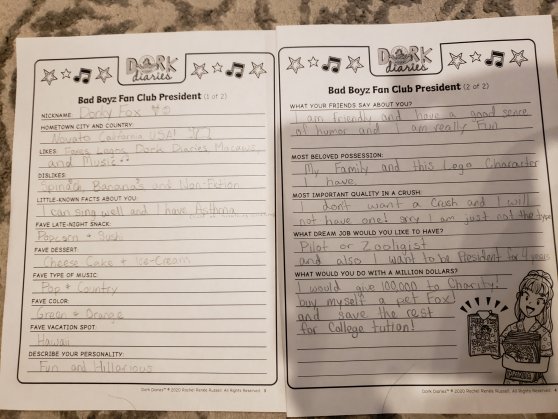 DORK
diaries
Bad Boyz Fan Club President (1 of 2)
NICKNAME:
Dorky Fox
HOMETOWN CITY AND COUNTRY:
Novato California USA!
LIKES: Foxes, Legos, Dork Diaries, Macaws,
and Music
DISLIKES:
Spinach, Banana's and Non-Fiction
LITTLE-KNOWN FACTS ABOUT YOU:
I can sing well and I have Asthma
FAVE LATE-NIGHT SNACK:
Popcorn + Sushi
FAVE DESSERT:
Cheese Cake + Ice-Cream
FAVE TYPE OF MUSIC:
Pop + Country
FAVE COLOR:
Green + Orange
FAVE VACATION SPOT:
Hawaii
DESCRIBE YOUR PERSONALITY:
Fun and Hillarious
Dork Diaries™ © 2020 Rachel Renée Russell. All Rights Reserved. 3
DORK
diaries
Bad Boyz Fan Club President (2 of 2)
WHAT YOUR FRIENDS SAY ABOUT YOU?
I am friendly and have a good sense
of humor and I am really Fun
MOST BELOVED POSSESSION:
My Family and this Lego Character
I have.
MOST IMPORTANT QUALITY IN A CRUSH:
I don't want a Crush and I will
not have one! sorry I am just not the type
WHAT DREAM JOB WOULD YOU LIKE TO HAVE?
Pilot or Zoologist
and also I want to be President for 4 years
WHAT WOULD YOU DO WITH A MILLION DOLLARS?
I would give 100,000 to Charity!
buy myself a pet Fox!
and save the rest
for College tution!
Dork Diaries™ © 2020 Rachel Renée Russell. All Rights Reserved. 4